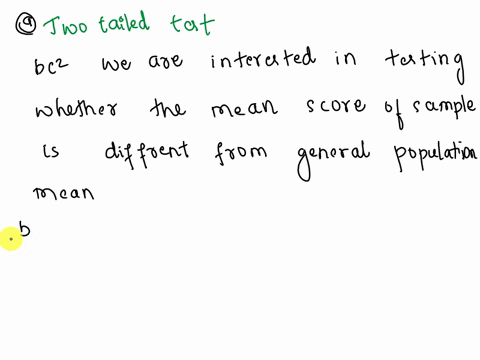 ⓐ Two tailed test
bc² we are interested in testing
whether the mean score of sample
is diffrent from general population
mean
b